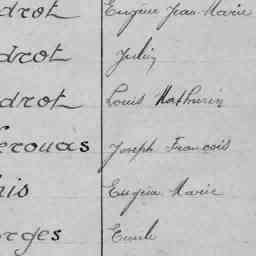 drot Eugène Jean Marie
drot Julien
drot Louis Mathurin
erouas Joseph François
his Eugéna Marie
orges Emile